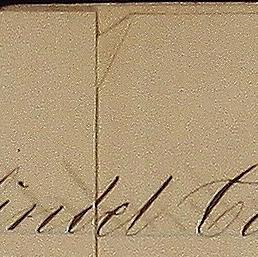 indel Co